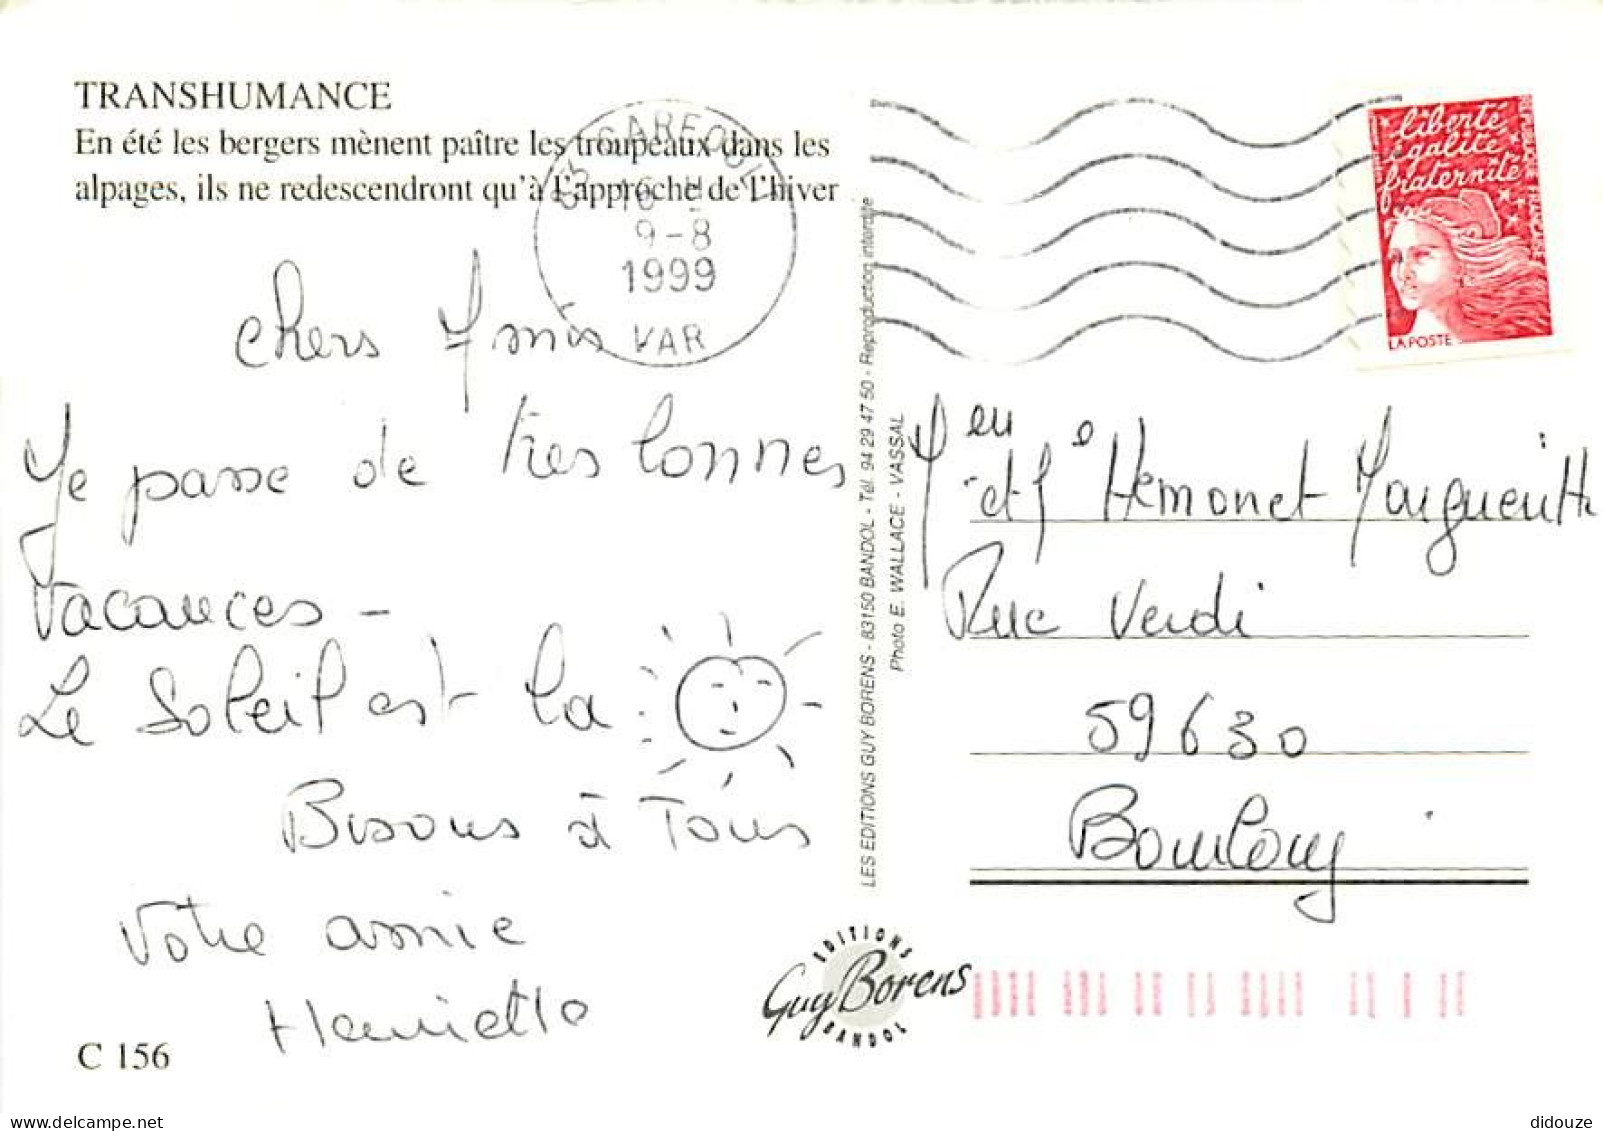 TRANSHUMANCE
En été les bergers mènent paître les troupeaux dans les
alpages, ils ne redescendront qu'à l'approche de l'hiver
83 GAREOULT
16 H
9-8
1999
VAR
liberté
égalité
fraternité
RÉPUBLIQUE FRANÇAISE
LA POSTE
Chers Amis
Je passe de tres bonnes
vacances -
Le Soleil est la
Bisous à Tous
Votre amie
Henriette
C 156
LES EDITIONS GUY BORENS - 83150 BANDOL - Tél. 94 29 47 50 - Reproduction interdite
Photo E. WALLACE - VASSAL
EDITIONS
Guy Borens
BANDOL
et Hemonet Marguerite
Rue Verdi
59630
Bourbourg
delcampe.net
didouze